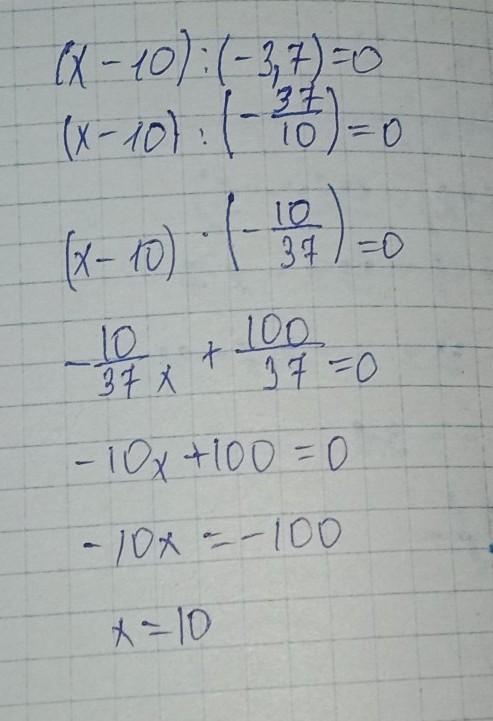 (x-10):(-3,7)=0
(x-10):(-37/10)=0
(x-10)·(-10/37)=0
-10/37x+100/37=0
-10x+100=0
-10x=-100
x=10